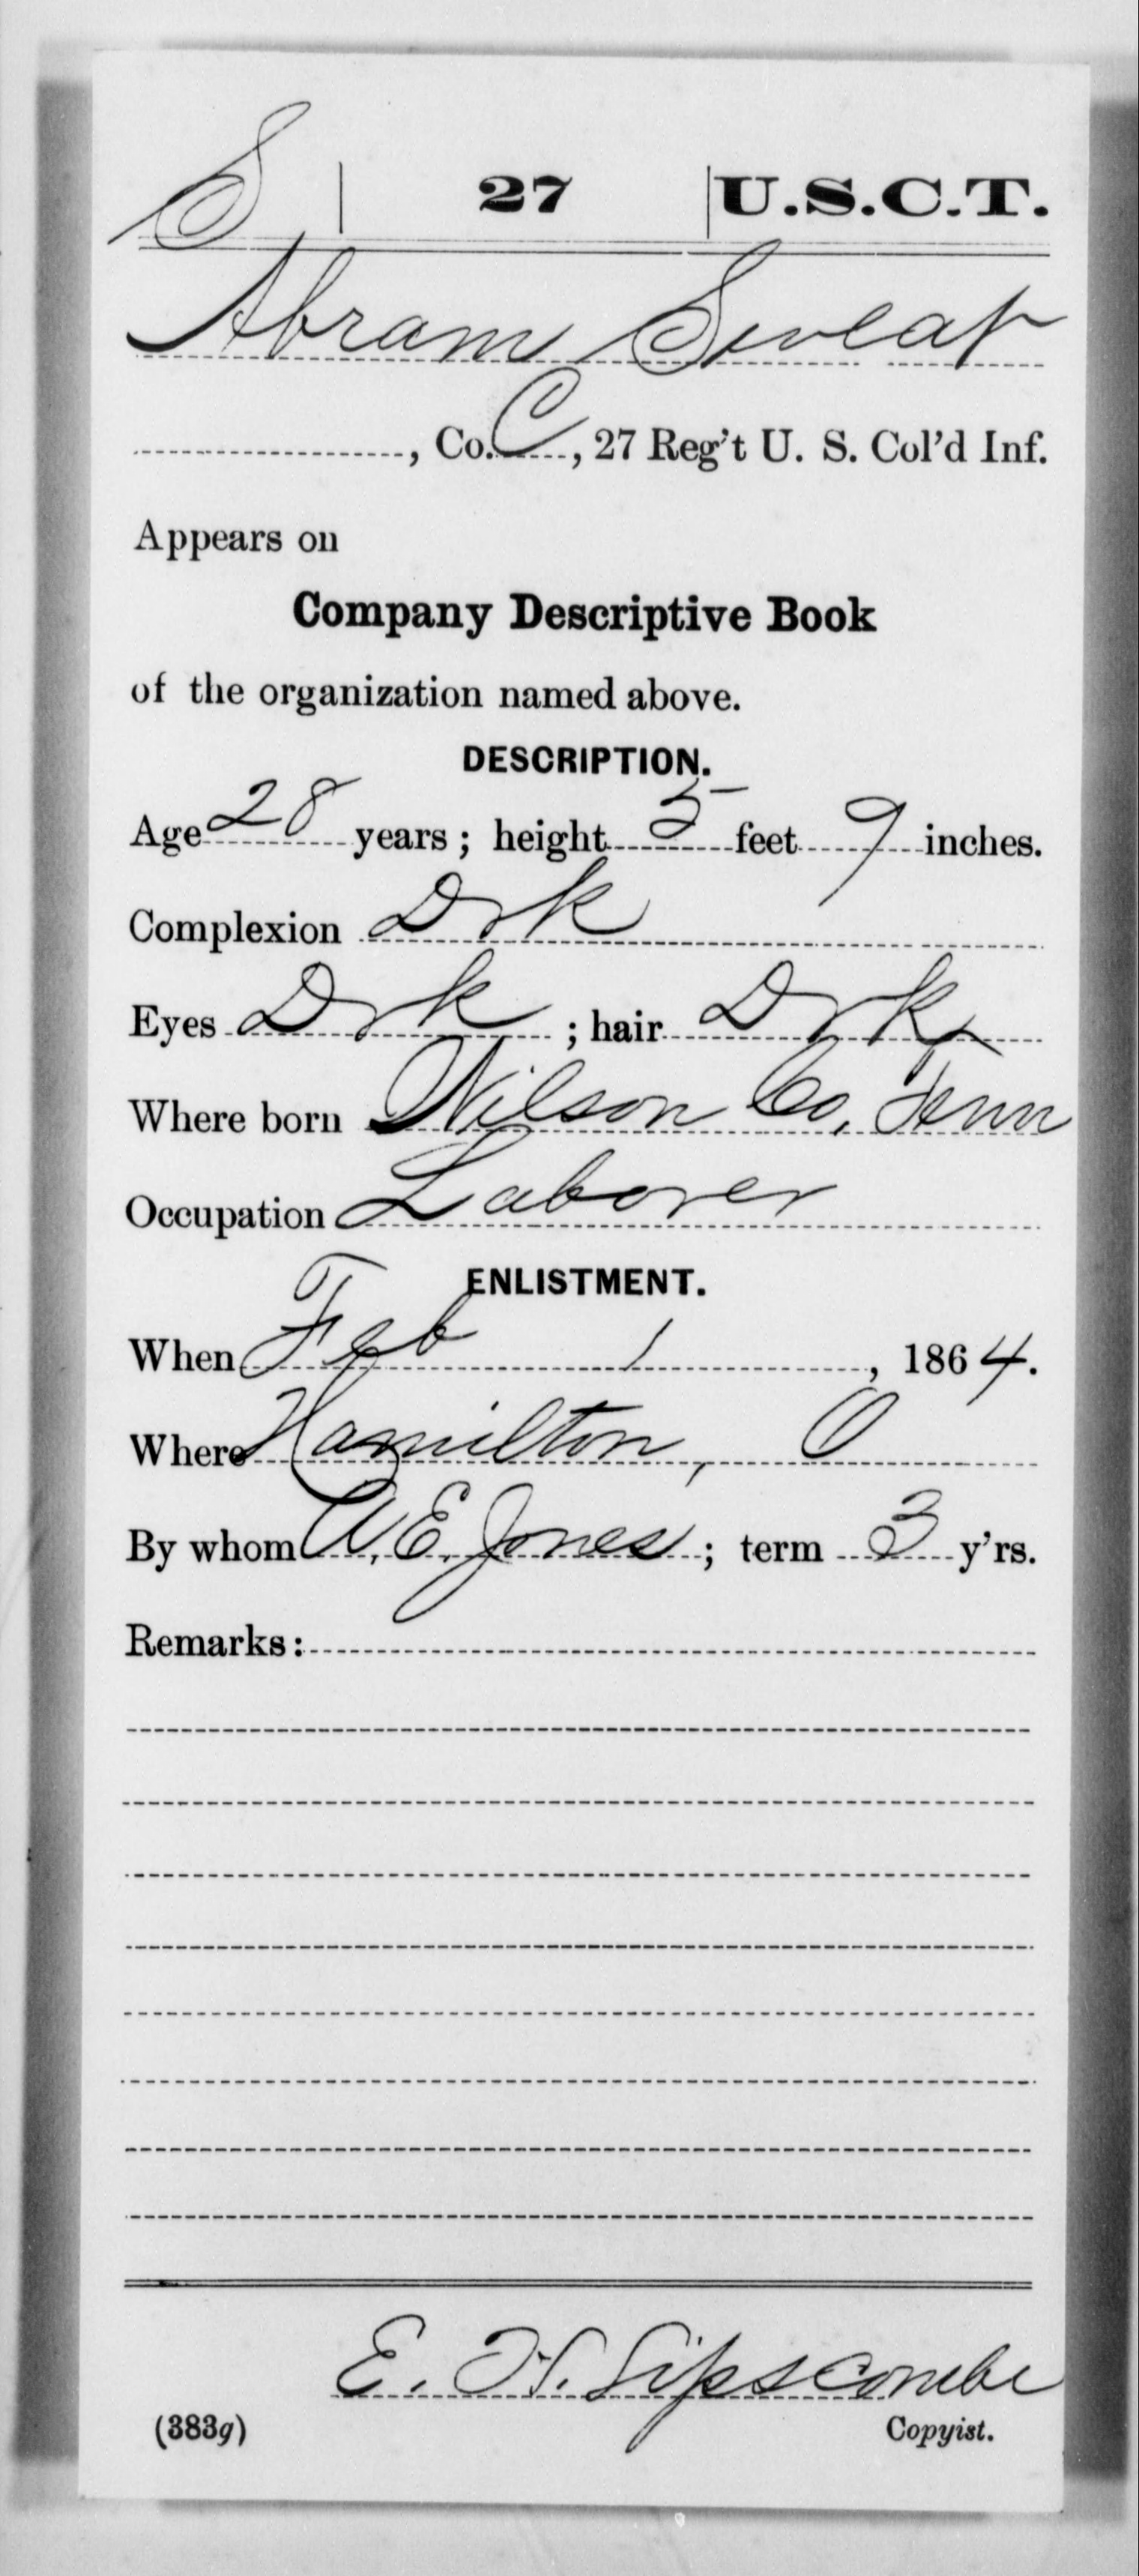 S | 27 | U.S.C.T.
Abram Sweat
, Co. C, 27 Reg't U. S. Col'd Inf.
Appears on
Company Descriptive Book
of the organization named above.
DESCRIPTION.
Age 28 years; height 5 feet 9 inches.
Complexion Drk
Eyes Drk; hair Drk
Where born Wilson Co, Tenn
Occupation Laborer
ENLISTMENT.
When Feb 1, 1864.
Where Hamilton, O
By whom A. E. Jones; term 3 y'rs.
Remarks:
E. H. Lipscombe
(383g) Copyist.